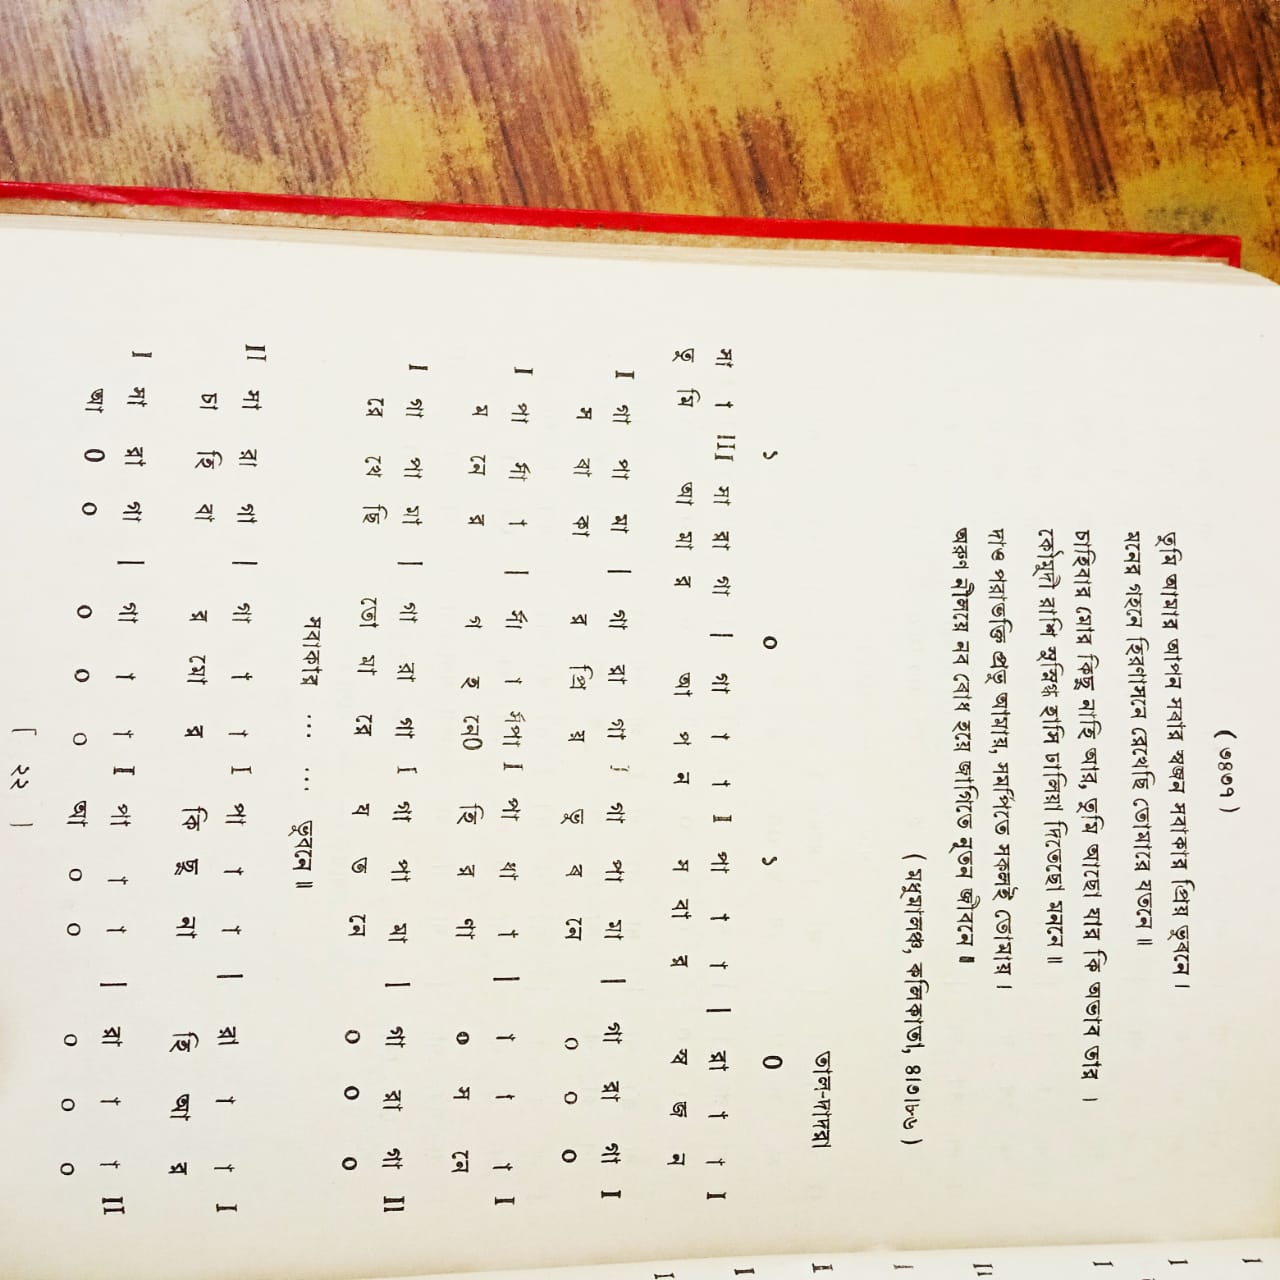 ( ৩৪৩৭ )
তুমি আমার আপন সবার স্বজন সবাকার প্রিয় ভুবনে।
মনের গহনে হিরণ্যাসনে রেখেছি তোমারে যতনে॥
চাহিবার মোর কিছু নাহি আর, তুমি আছো যার কি অভাব তার।
কৌমুদী রাশি সুস্নিগ্ধ হাসি ঢালিয়া দিতেছো মননে॥
দাও পরাভক্তি প্রভু আমায়, সমর্পিতে সকলই তোমায়।
অরুণ নীলিময়ে নব বোধ হয়ে জাগিতে নূতন জীবনে॥
( মধুমালঞ্চ, কলিকাতা, ৪।৭।৮৬ )
তাল-দাদরা
১ ০ ১ 0
সা † III সা রা গা | গা † † I পা † † | রা † † I
তু মি আ মা র আ প ন স বা র স্ব জ ন
I গা পা মা | গা রা গা I গা পা মা | গা রা গা I
স বা কা র প্রি য় ভু ব নে ০ ০ ০
I পা র্সা † | র্সা † র্সপা I পা ধা † | † † † I
ম নে র গ হ নে0 হি র ণ্যা ০ স নে
I গা পা মা | গা রা গা I গা পা মা | গা রা গা II
রে খে ছি তো মা রে য ত নে ০ ০ ০
সবাকার ... ... ভুবনে॥
II সা রা গা | গা † † I পা † † | রা † † I
চা হি বা র মো র কি ছু না হি আ র
I সা রা গা | গা † † I পা † † | রা † † II
আ 0 ০ ০ ০ ০ আ ০ ০ ০ ০ ০
[ ২২ ]